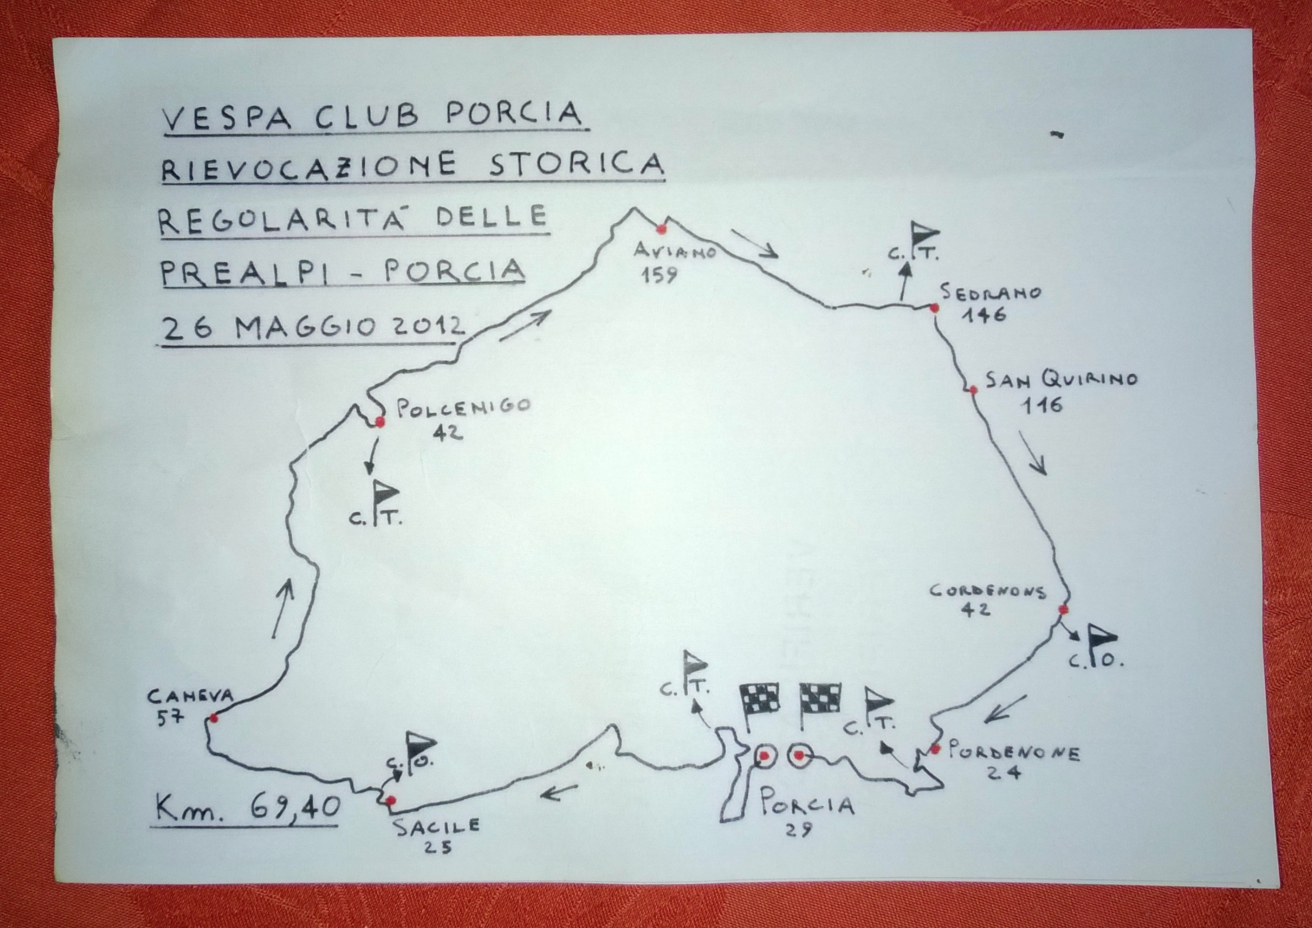 VESPA CLUB PORCIA
RIEVOCAZIONE STORICA
REGOLARITÀ DELLE
PREALPI - PORCIA
26 MAGGIO 2012
AVIANO
159
C.T.
SEDRANO
146
SAN QUIRINO
116
POLCENIGO
42
C.T.
CORDENONS
42
C.O.
CANEVA
57
C.T.
C.T.
PORDENONE
24
C.O.
Km. 69,40
PORCIA
29
SACILE
25